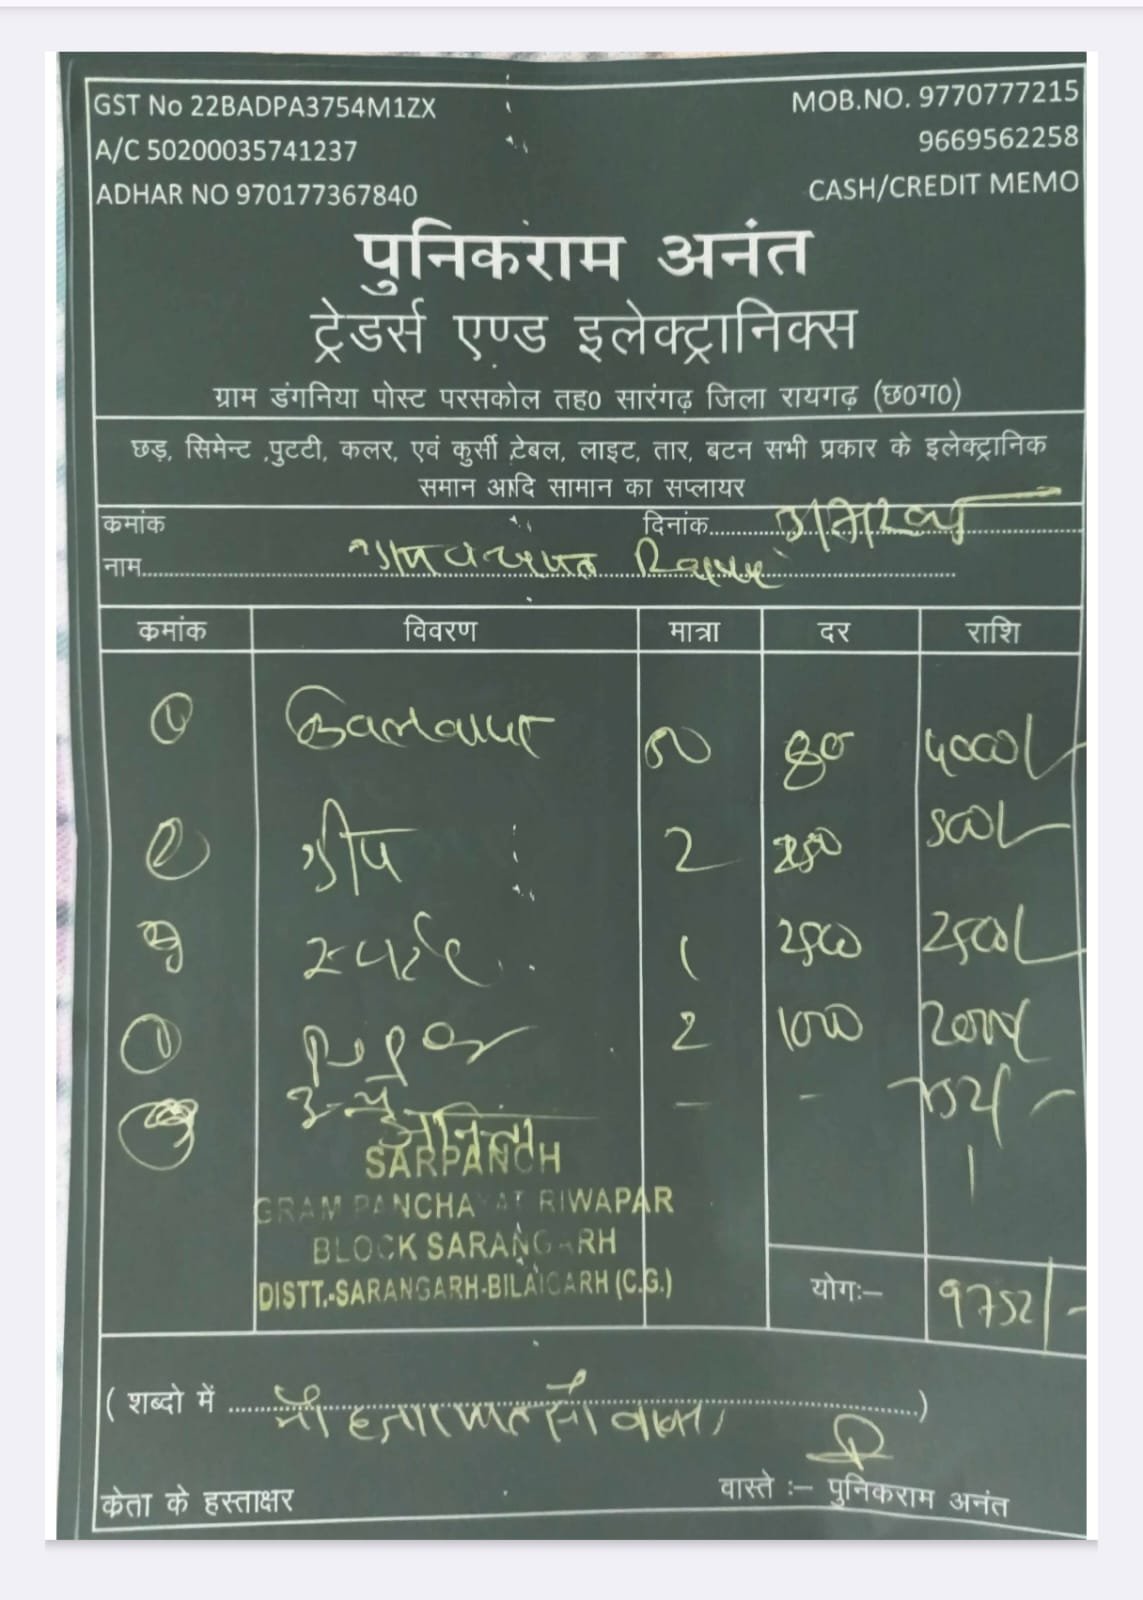 GST No 22BADPA3754M1ZX
MOB.NO. 9770777215
A/C 50200035741237
9669562258
ADHAR NO 970177367840
CASH/CREDIT MEMO
पुनिकराम अनंत
ट्रेडर्स एण्ड इलेक्ट्रानिक्स
ग्राम डंगनिया पोस्ट परसकोल तह0 सारंगढ़ जिला रायगढ़ (छ0ग0)
छड़, सिमेन्ट ,पुटटी, कलर, एवं कुर्सी टेबल, लाइट, तार, बटन सभी प्रकार के इलेक्ट्रानिक
समान आदि सामान का सप्लायर
कमांक दिनांक
नाम
कमांक विवरण मात्रा दर राशि
1 50 80 4000/-
2 2 250 500/-
1 2500 2500/-
2 1000 2000/-
अन्य - - 752/-
SARPANCH
GRAM PANCHAYAT RIWAPAR
BLOCK SARANGARH
DISTT.-SARANGARH-BILAIGARH (C.G.)
योगः– 9752/-
( शब्दो में नौ हजार सात सौ बावन )
केता के हस्ताक्षर वास्ते :– पुनिकराम अनंत